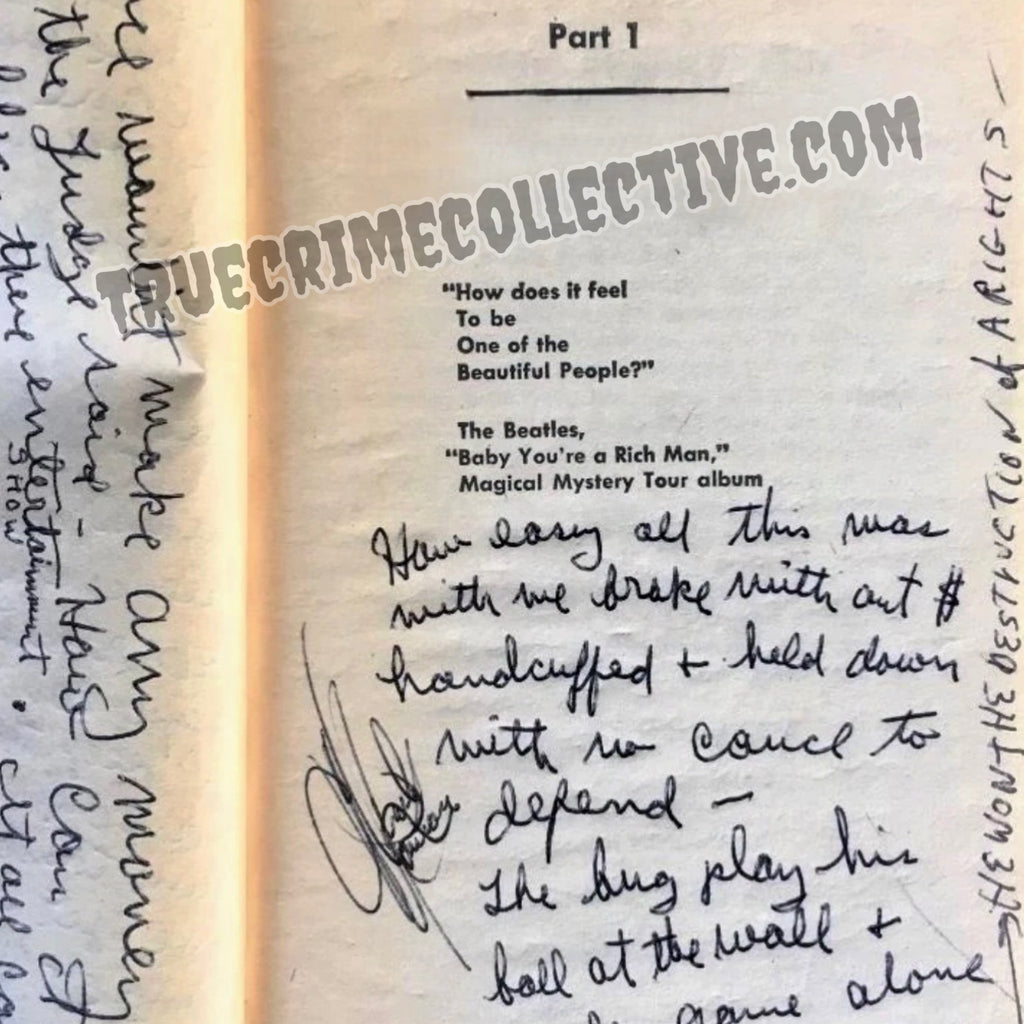 Part 1
TRUECRIMECOLLECTIVE.COM
"How does it feel
To be
One of the
Beautiful People?"
The Beatles,
"Baby You're a Rich Man,"
Magical Mystery Tour album
How easy all this was
with me broke with out $
handcuffed + held down
with no to
defend —
The bug play his
ball at the wall +
game alone
HE WON THE DESTRUCTION of A RIGHTS —
make any money
the Judge said - Have Can I
there entertainment . at all
SHOW